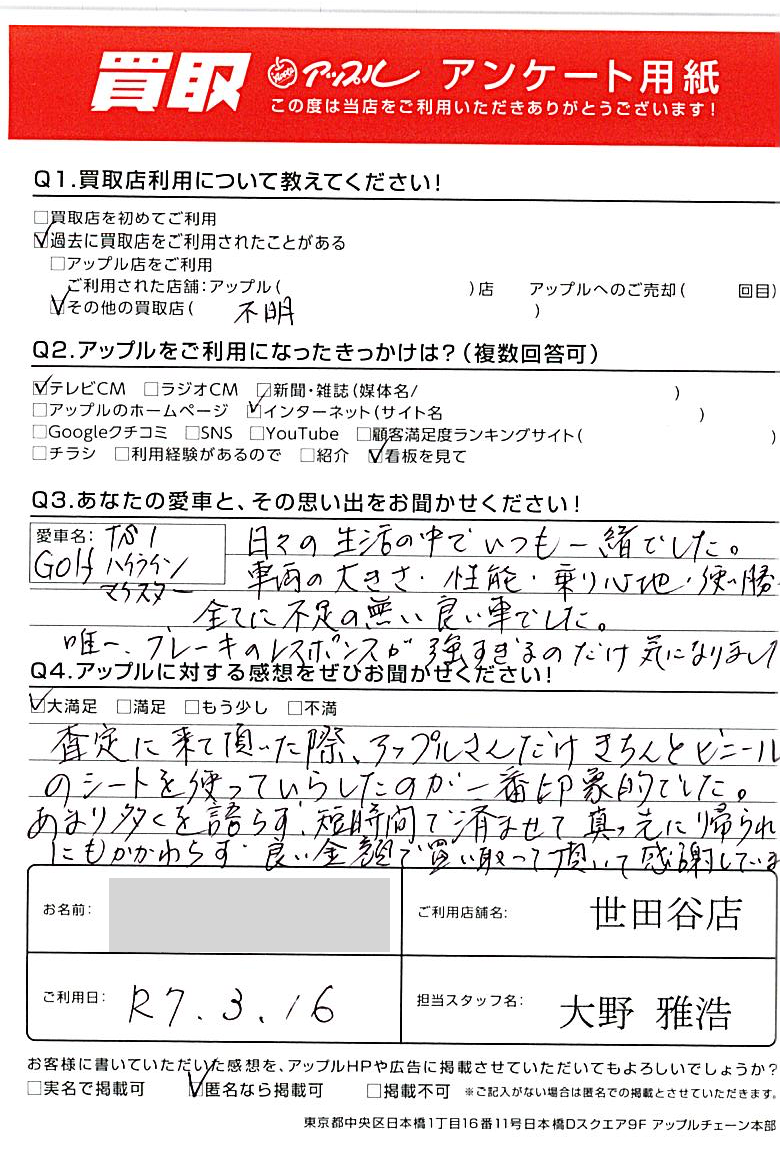 買取 アップル アンケート用紙
この度は当店をご利用いただきありがとうございます!
Q1.買取店利用について教えてください!
□買取店を初めてご利用
☑過去に買取店をご利用されたことがある
□アップル店をご利用
ご利用された店舗:アップル( )店 アップルへのご売却( 回目)
☑その他の買取店( 不明 )
Q2.アップルをご利用になったきっかけは?(複数回答可)
☑テレビCM □ラジオCM □新聞・雑誌(媒体名/ )
□アップルのホームページ ☑インターネット(サイト名 )
□Googleクチコミ □SNS □YouTube □顧客満足度ランキングサイト( )
□チラシ □利用経験があるので □紹介 ☑看板を見て
Q3.あなたの愛車と、その思い出をお聞かせください!
愛車名: Golf TSI ハイライン マイスター
日々の生活の中でいつも一緒でした。
車両の大きさ・性能・乗り心地・使い勝
全てに不足の無い良い車でした。
唯一、ブレーキのレスポンスが強すぎるのだけ気になりまし
Q4.アップルに対する感想をぜひお聞かせください!
☑大満足 □満足 □もう少し □不満
査定に来て頂いた際、アップルさんだけきちんとビニール
のシートを使っていらしたのが一番印象的でした。
あまり多くを語らず、短時間で済ませて真っ先に帰られ
にもかかわらず、良い金額で買い取って頂いて感謝していま
お名前:
ご利用店舗名: 世田谷店
ご利用日: R7.3.16
担当スタッフ名: 大野 雅浩
お客様に書いていただいた感想を、アップルHPや広告に掲載させていただいてもよろしいでしょうか?
□実名で掲載可 ☑匿名なら掲載可 □掲載不可 ※ご記入がない場合は匿名での掲載とさせていただきます。
東京都中央区日本橋1丁目16番11号日本橋Dスクエア9F アップルチェーン本部